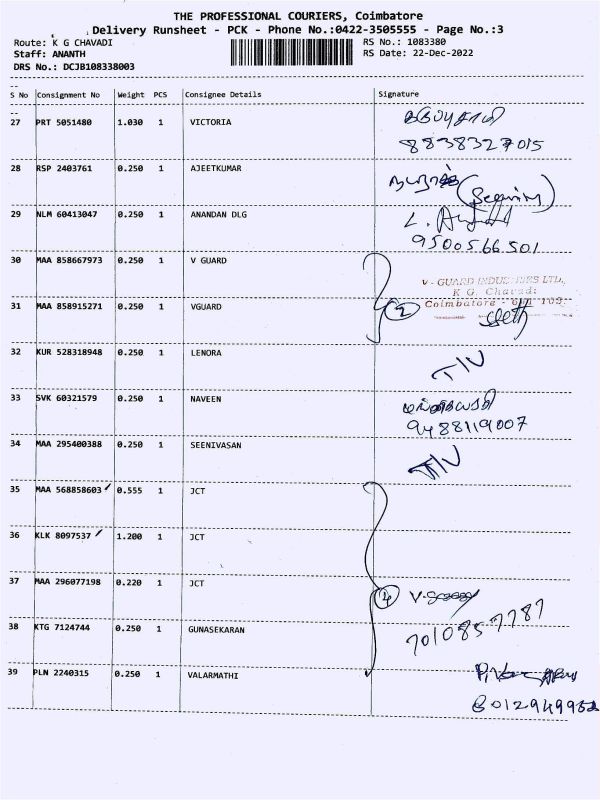 THE PROFESSIONAL COURIERS, Coimbatore
Delivery Runsheet - PCK - Phone No.:0422-3505555 - Page No.:3
Route: K G CHAVADI RS No.: 1083380
Staff: ANANTH RS Date: 22-Dec-2022
DRS No.: DCJB108338003
S No Consignment No Weight PCS Consignee Details Signature
27 PRT 5051480 1.030 1 VICTORIA
8838327015
28 RSP 2403761 0.250 1 AJEETKUMAR
29 NLM 60413047 0.250 1 ANANDAN DLG
9500566501
30 MAA 858667973 0.250 1 V GUARD
V-GUARD INDUSTRIES LTD.,
K G Chavadi
Coimbatore
31 MAA 858915271 0.250 1 VGUARD 2
32 KUR 528318948 0.250 1 LENORA
33 SVK 60321579 0.250 1 NAVEEN
9488119007
34 MAA 295400388 0.250 1 SEENIVASAN
35 MAA 568858603 0.555 1 JCT
36 KLK 8097537 1.200 1 JCT
37 MAA 296077198 0.220 1 JCT 4
7010857787
38 KTG 7124744 0.250 1 GUNASEKARAN
39 PLN 2240315 0.250 1 VALARMATHI